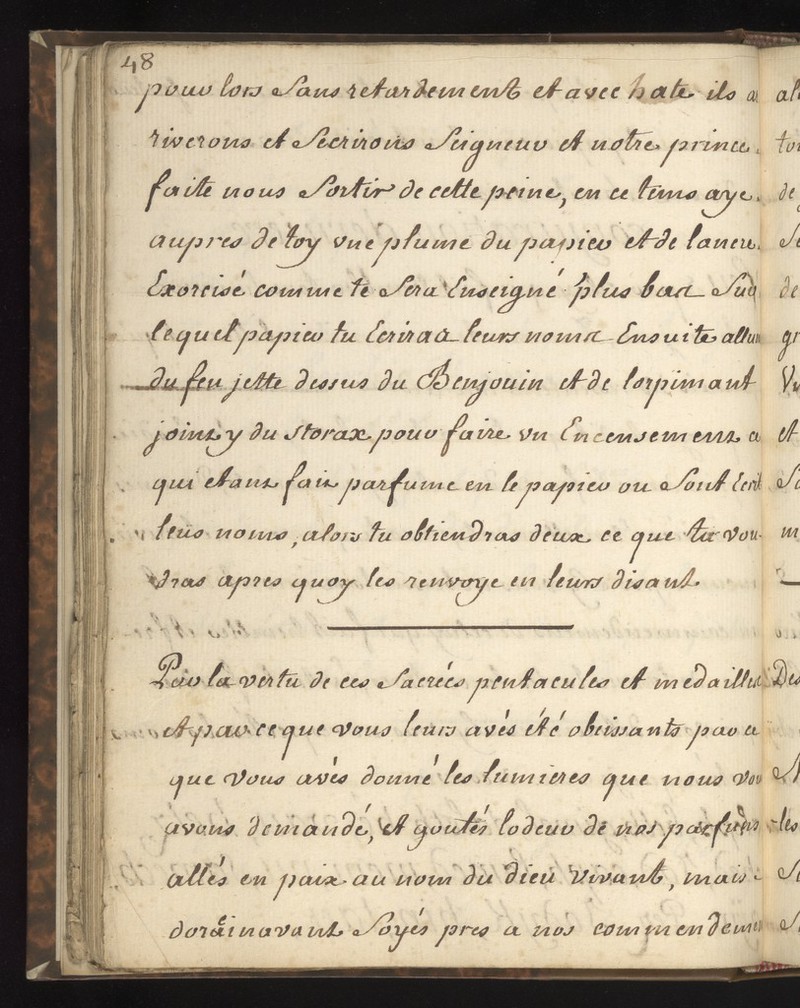 48
pour lors Sans retardement et avec hate ils a
riverons et Secrirons Seigneur et notre prince
faite nous Sortir de cette peine, en ce tems aye
aupres de toy vne plume du papier et de lancre
Exorcisé comme te Sera Enseigné plus bas Sur
lequel papier tu Ecriras leurs noms Ensuite allum
du feu jette dessus du Benjouin et de lorpimant
joint y du storax pour faire vn Encensement a
qui etant fait parfume en le papier ou Sont Ecrit
leus noms, alors tu obtiendras deux ce que tu vou
dras apres quoy les renvoye en leurs disant
Par la vertu de ces Sacreés pentacules et medailles
et par ce que vous leurs avés été obeissants par ce
que vous avés donné les lumieres que nous vou
avons demandé, et goutés lodeur de nos parfums
allés en paix au nom du dieu vivant, mais
dorainavant Soyés pres a nos commendemen
al
tou
de
Se
de
gr
Vn
et
Se
m
Des
N
les
S